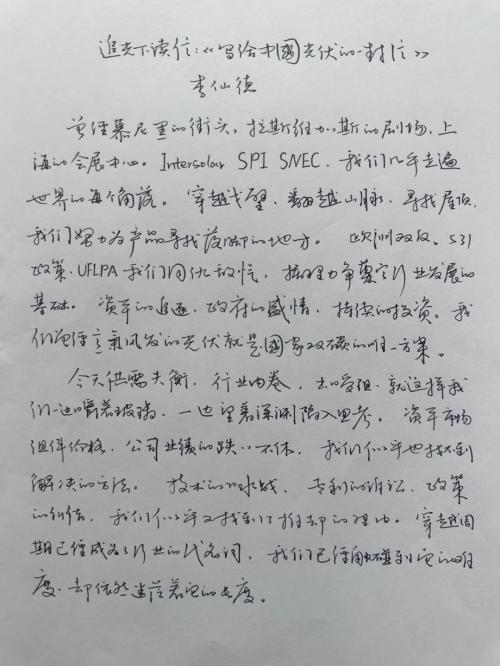 追光下读信：《写给中國光伏的一封信》
李仙德
曾经慕尼黑的街头，拉斯维加斯的剧场，上
海的会展中心。Intersolar SPI SNEC，我们几乎走遍
世界的每个角落。穿越戈壁，翻越山脉，寻找屋顶，
我们努力为产品寻找落脚的地方。欧洲双反。531
政策，UFLPA 我们同仇敌忾，据理力争奠定行业发展的
基础。资本的追逐，政府的盛情，持续的投资。我
们曾经意氣风发的光伏就是國家双碳的唯一方案。
今天供需失衡，行业内卷，出口受阻，就这样我
们一边嚼着玻璃，一边望着深渊陷入思考。资本市场
组件价格，公司业绩的跌跌不休，我们似乎也找不到
解决的方法。技术的口水战，专利的诉讼，政策
的纠结，我们似乎又找到了推卸的理由。穿越周
期已经成为行业的代名词，我们已经触碰到它的难
度，却依然迷茫着它的长度。